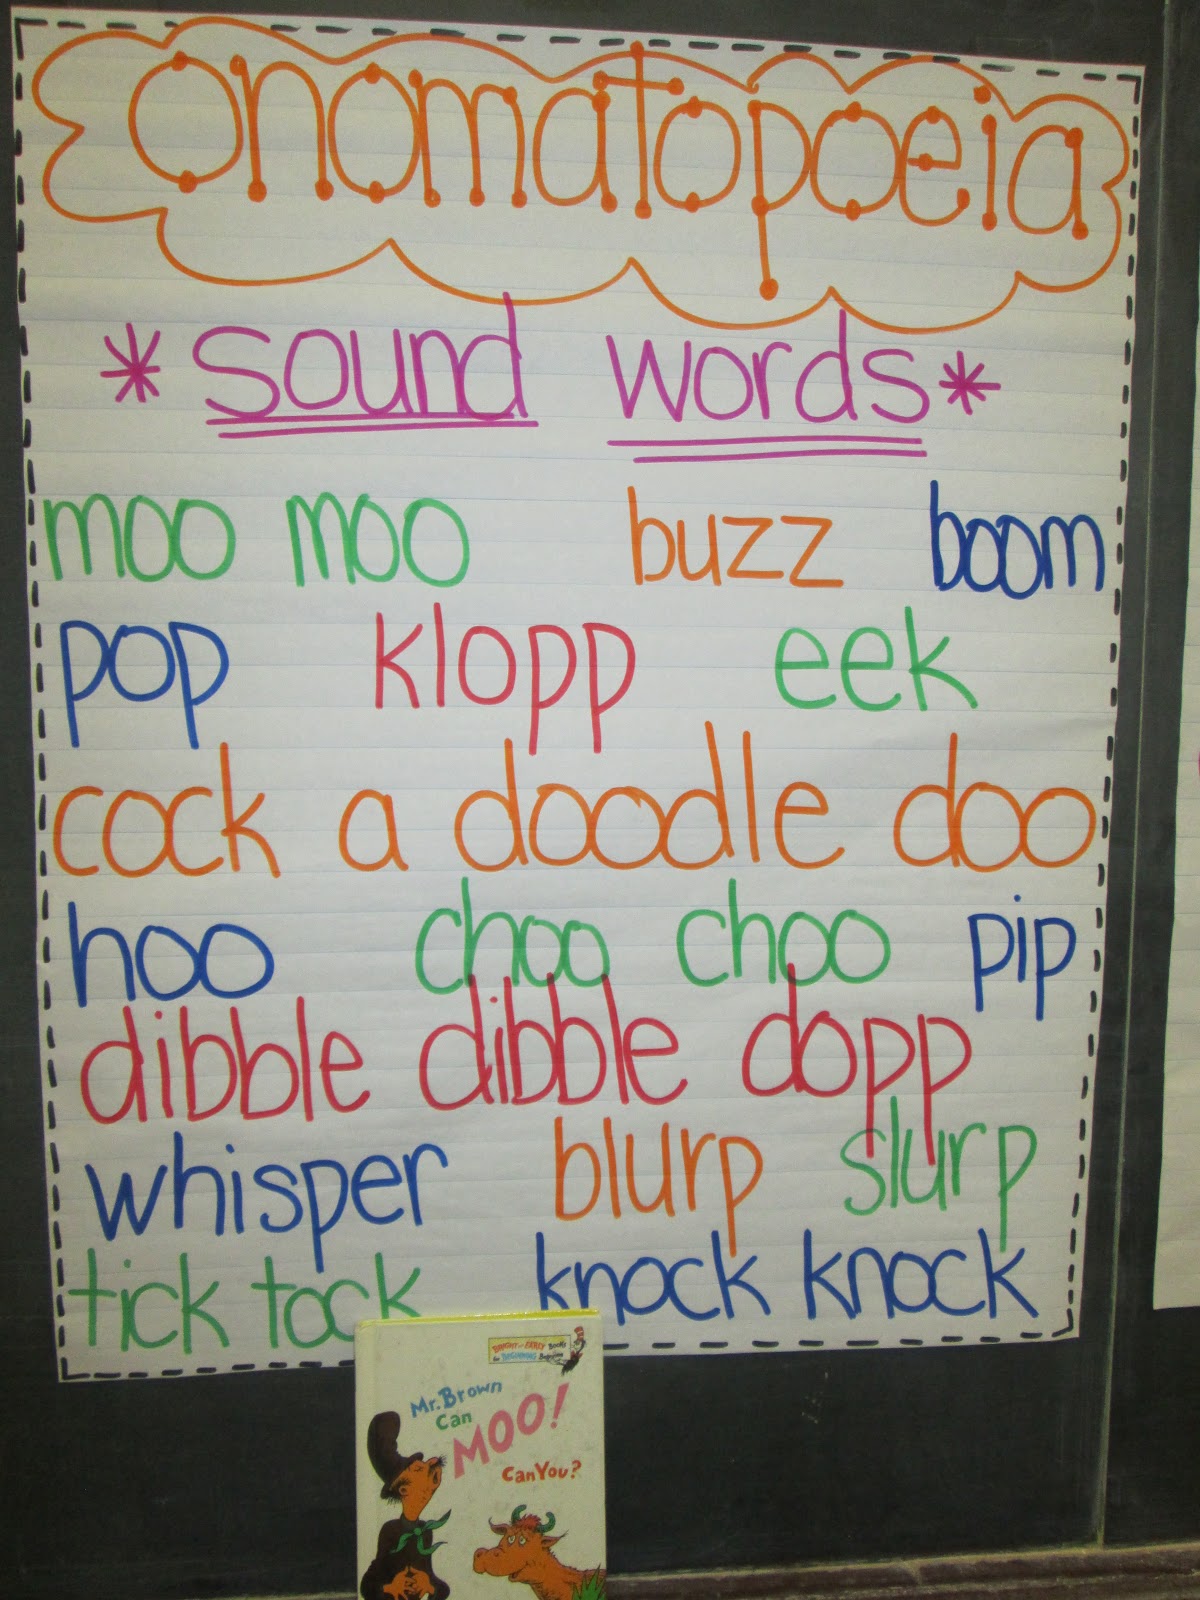 onomatopoeia
*sound words*
moo moo buzz boom
pop klopp eek
cock a doodle doo
hoo choo choo pip
dibble dibble dopp
whisper blurp slurp
tick tock knock knock
BRIGHT and EARLY Books
for BEGINNING Beginners
Mr. Brown
Can
MOO!
Can You?